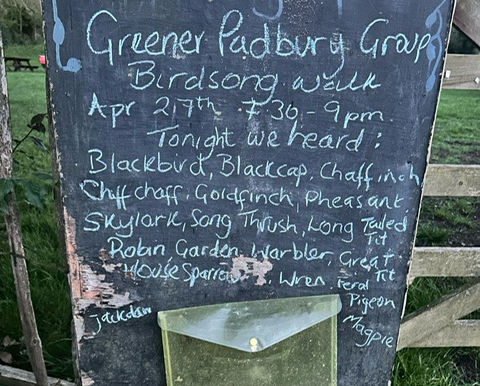 Greener Padbury Group
Birdsong walk
Apr 27th 7.30-9pm
Tonight we heard:
Blackbird, Blackcap, Chaffinch
Chiffchaff, Goldfinch, Pheasant.
Skylark, Song Thrush, Long Tailed Tit
Robin Garden Warbler, Great Tit
House Sparrow, Wren, feral Pigeon
jackdaw Magpie